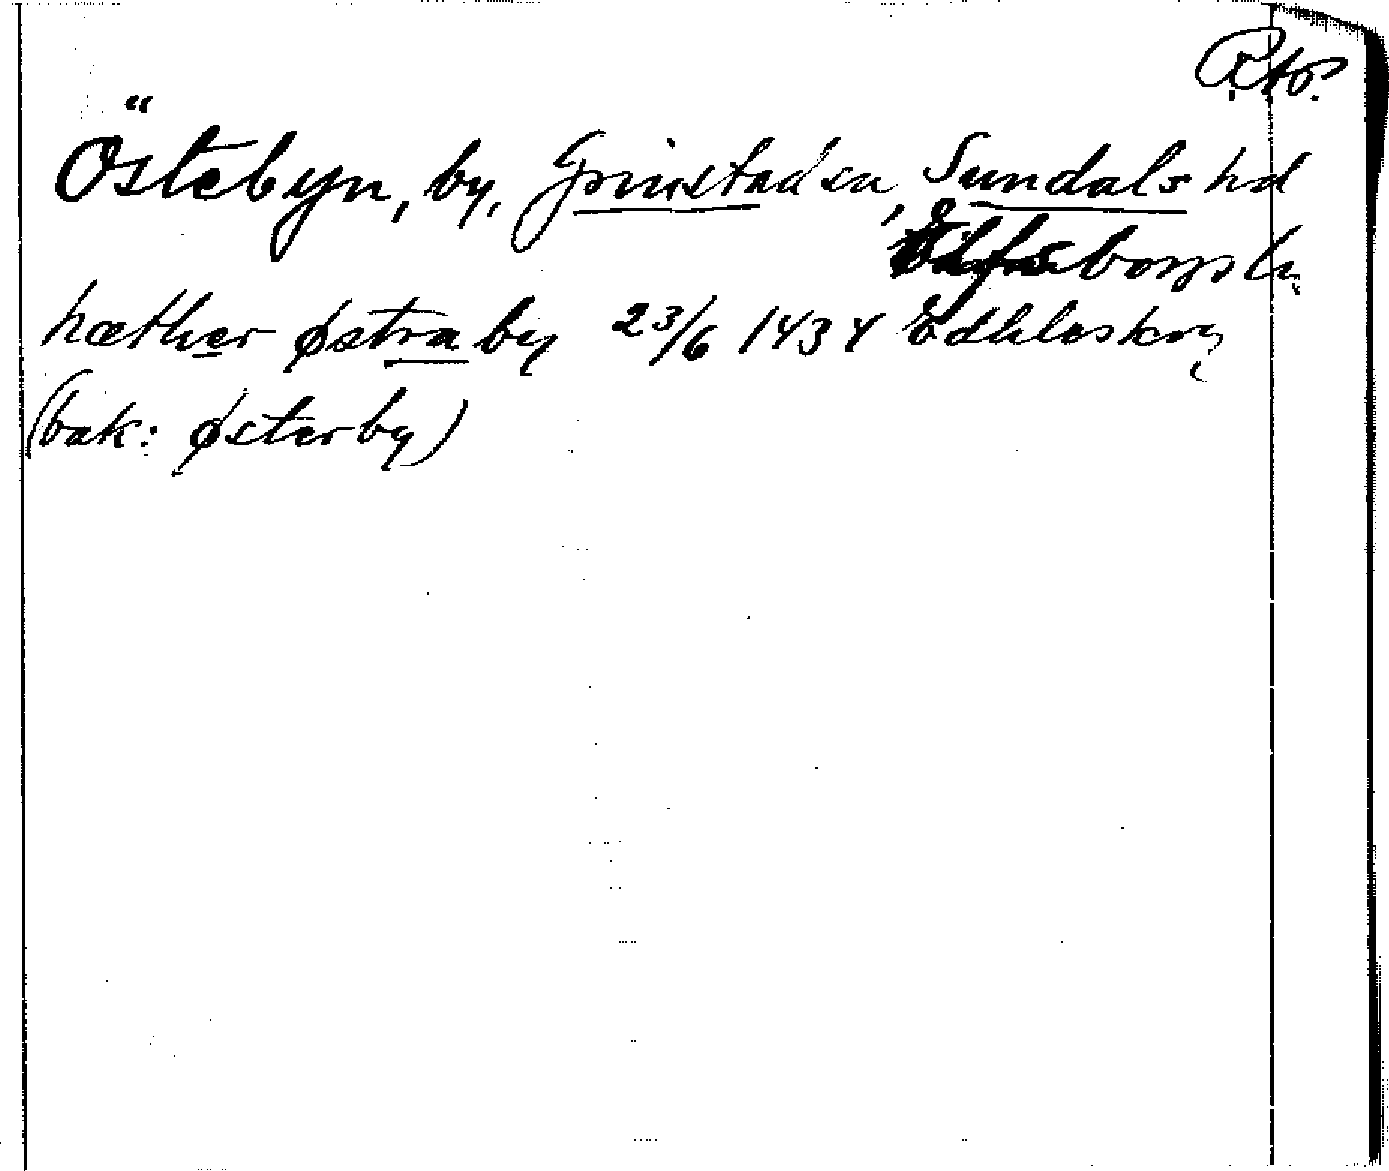 R.to.
Östebyn, by, Grinstad sn, Sundals hd
Elfsborgs ln
hæther østraby 23/6 1434 Edhleskog
(bak: østerby)